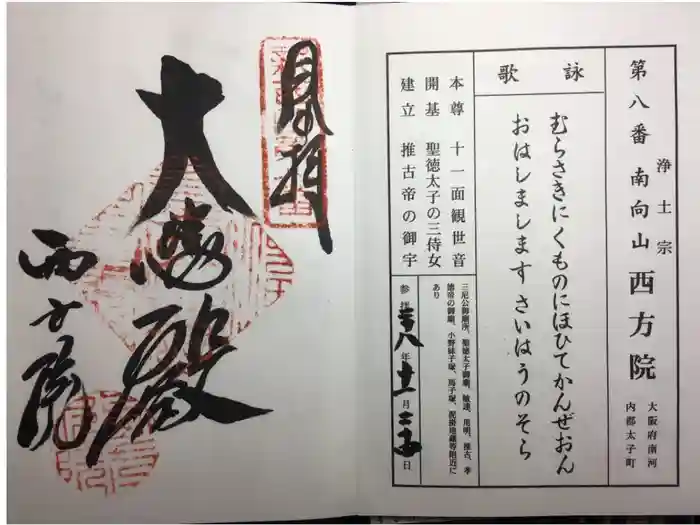 第八番 南向山 西方院
浄土宗
大阪府南河
内郡太子町
詠歌
むらさきにくものにほひてかんぜおん
おはしまします さいはうのそら
本尊 十一面観世音
開基 聖徳太子の三侍女
建立 推古帝の御宇
三尼公御廟所、聖徳太子御廟、敏達、用明、推古、孝
徳帝の御廟、小野妹子塚、馬子塚、泥掛地蔵等附近に
あり
参拝 二八年十二月二十日
奉拝
大悲殿
西方院